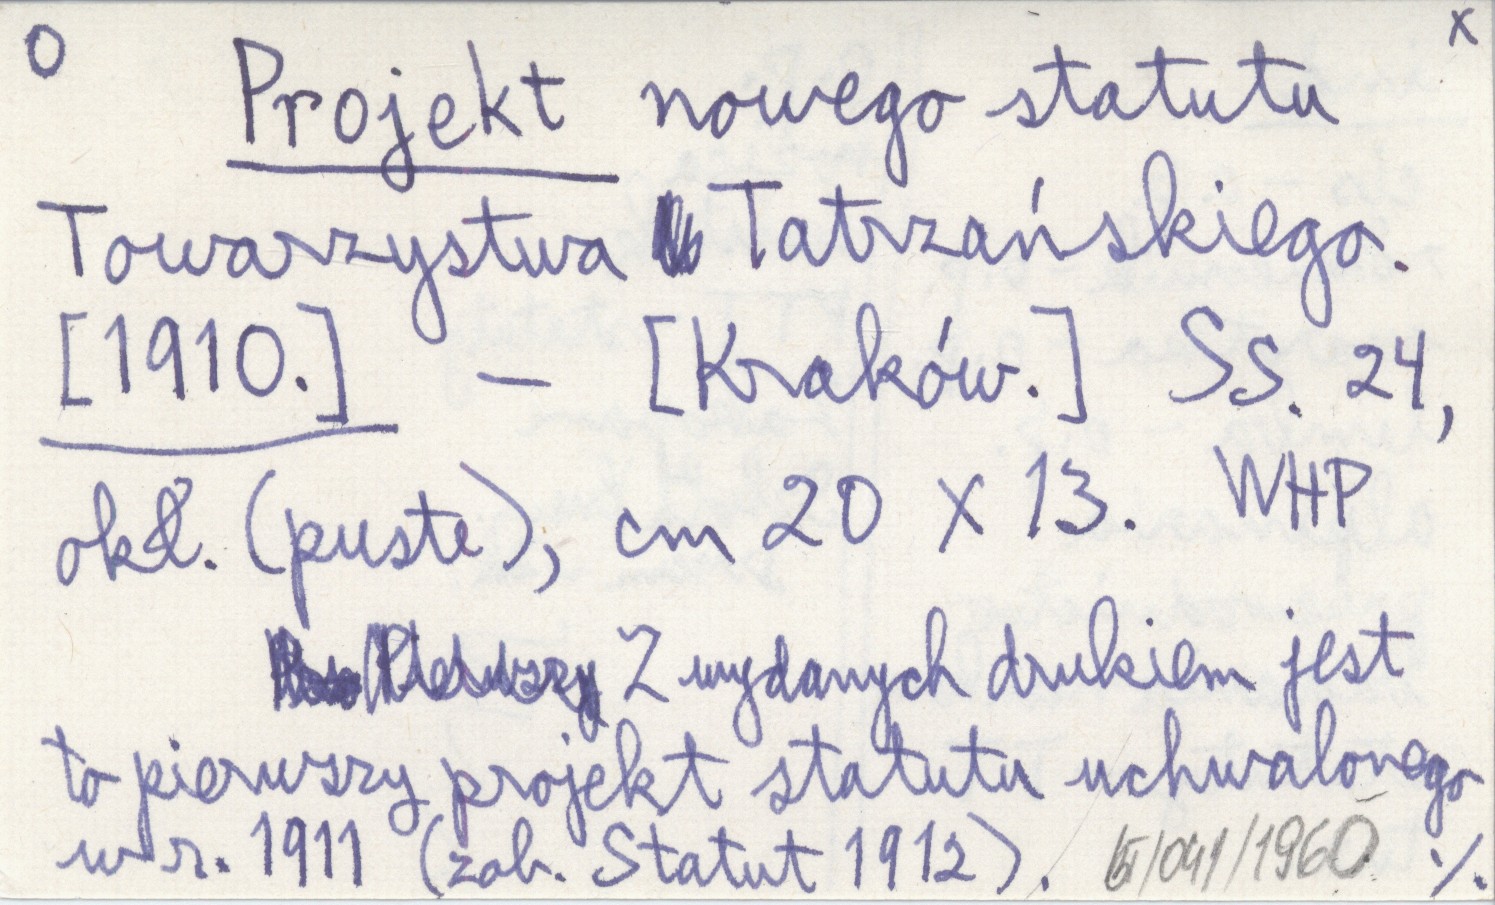 O x
Projekt nowego statutu
Towarzystwa Tatrzańskiego.
[1910.] — [Kraków.] Ss. 24,
okł. (puste), cm 20 x 13. WHP
Pierwszy Z wydanych drukiem jest
to pierwszy projekt statutu uchwalonego
w r. 1911 (zob. Statut 1912). /041/1960 ./.